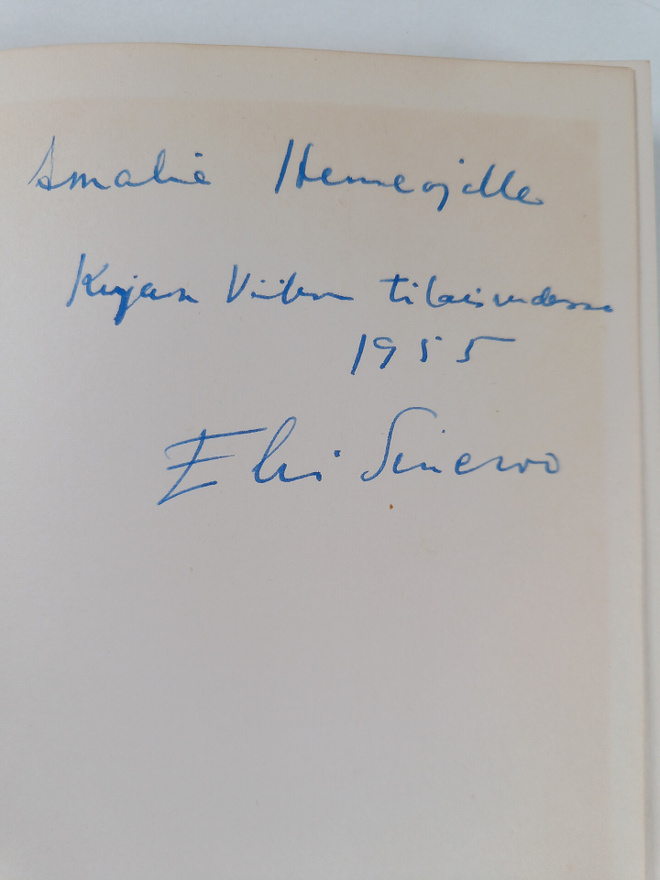 Amalie Hemeojalle
Kirjan Viikon tilaisuudessa
1955
Elvi Sinervo